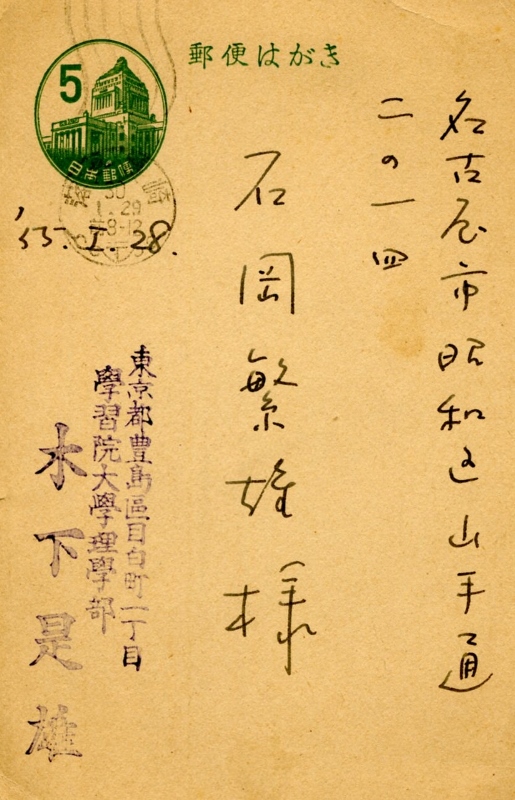 郵便はがき
5
日本郵便
30
1.29
8-12
'55. I. 28.
名古屋市昭和区山手通
二の一四
石岡繁雄様
東京都豊島區目白町一丁目
學習院大學理學部
木下是雄